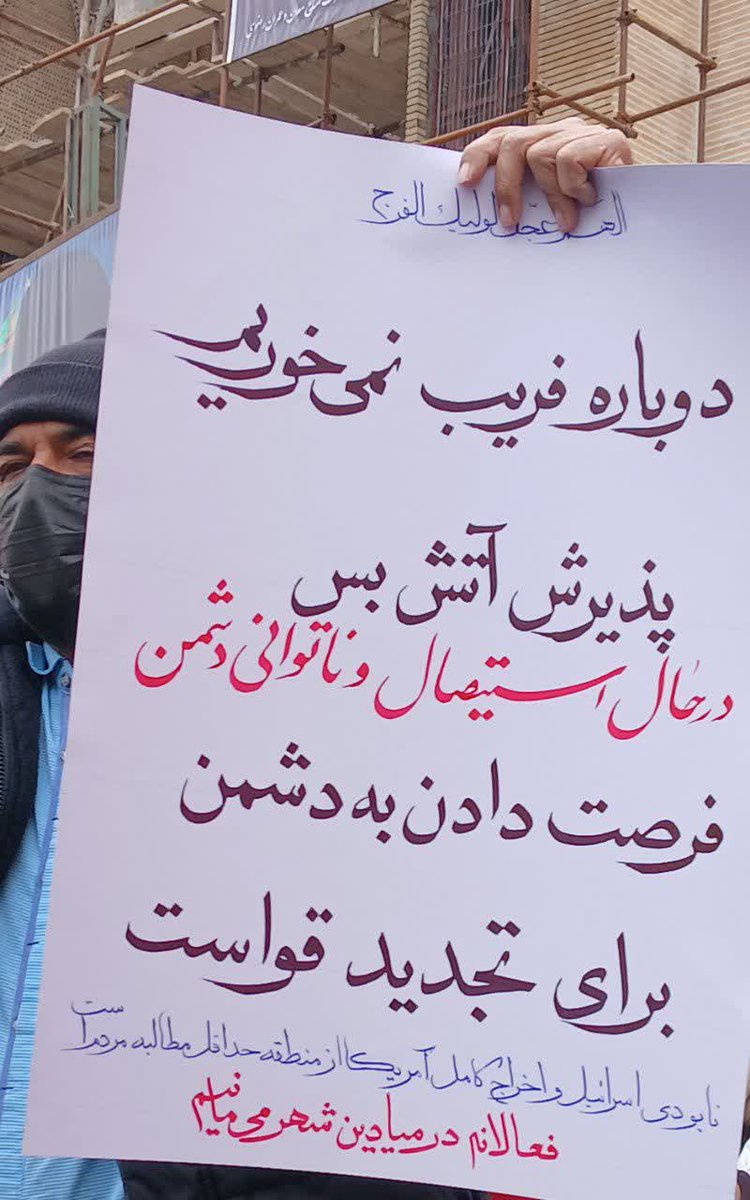 اللهم عجل لولیك الفرج
دوباره فریب نمی‌خوریم
پذیرش آتش بس
در حال استیصال و ناتوانی دشمن
فرصت دادن به دشمن
برای تجدید قواست
نابودی اسرائیل و اخراج کامل آمریکا از منطقه حداقل مطالبه مردم است
فعالانه در میادین شهر می‌مانیم